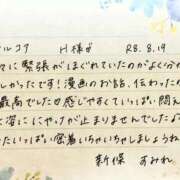 ルコア H様♂ R8.8.19
々に緊張がほぐれていたのがよく分
しかったです！漫画のお話、伝わったか
最高でした♡感じやすくていっぱい悶え
姿ににやけが止まりませんでしたよ
たいっぱい密着いちゃいちゃしましょうね
新保 すみれ